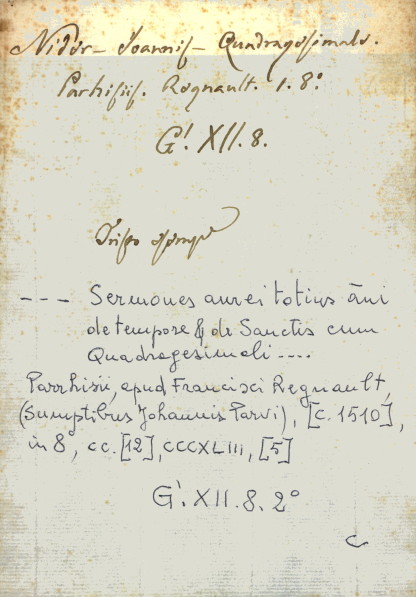 Nider - Joannis - Quadragesimale.
Parhisiis. Regnault. 1. 8°
G'. XII. 8.
--- Sermones aurei totius āni
de tempore & de Sanctis cum
Quadragesimali ....
Parrhisii, apud Francisci Regnault,
(Sumptibus Johannis Parvi), [c. 1510],
in 8°, cc. [12], CCCXLIII, [5]
G'. XII. 8. 2°